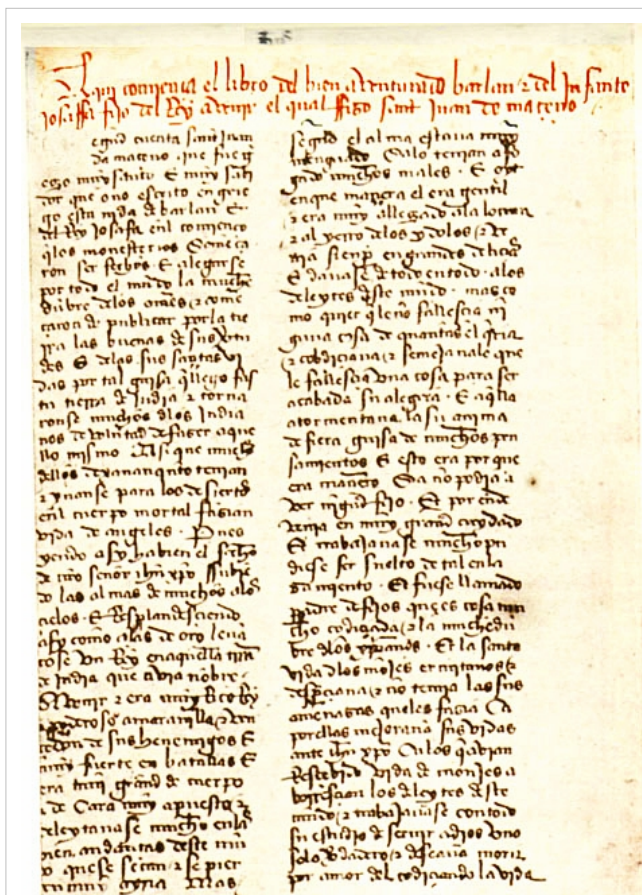 Aqui comiença el libro del bien aventurado barlan & del Infante
josaffa fijo del Rey avenir el qual ffizo sant juan de maçeno
egund cuenta sant juan
da maçeno que fue g
ego muy santo E muy sabi
dor que ono escrito en grie
go esta vida de barlan E
del Rey josafa en el comienço
q los monesterios Começa
ron ser fechos E alegarse
por todo el mundo la muche
dubre delos omes & come
çaron de publicar por la tie
rra las buenas de sus virtu
des E delas sus santas vi
das por tal guisa q llego fas
ta tierra de India & torna
ronse muchos dlos India
nos de voluntad de faser aque
llo mismo Asi que muchos
dellos tenian
& yvanse para los desiertos
en el cuerpo mortal fasian
vida de angeles . Pues
yendo asy bien el fecho
de nro señor ihu xpo subie
do las almas de muchos alos
cielos . E Resplandesciendo
asy como alas de oro leva
tose un Rey en aquella trra
de India que avia nobre
Avenir & era muy Rico Rey
poderoso a maravilla & ven
cedor de sus henemigos E
muy fuerte en batallas E
era muy grand de cuerpo
& de Cara muy apuesto &
deleytavase mucho en las
bien andantas deste mu
do que se secan & se pier
muy Mas
segund el alma estava muy
menguado Ca lo tenian afo
gado muchos males . E
en que manera el era gentil
& era muy allegado ala locura
& al yerro delos ydolos & be
via sienpre en grandes deliçias
E davase de todo en todo . alos
deleytes deste mudo . mas co
mo quier q le no fallescia ni
guna cosa de quantas el qria
& cobdiciava & semejavale que
le fallescia una cosa para ser
acabada su alegria . E aqlla
atormentava la su anima
de fiera guisa de muchos pen
samientos E esto era por que
era mañero Ca no podia a
ver ningud fijo . E por ende
tenia en muy grand cuydado
E trabajavase mucho pu
diese ser suelto de tal enla
gamiento . E fuese llamado
padre de fijos que es cosa mu
cho codiçiada & la muchedu
bre dlos xpianos . Et la santa
vida dlos mojes ermitanos &
despreciava & no temia las sus
amenazas que les fasia Ca
por ellas mejorava sus vidas
ante ihu xpo Ca los q avian
Resçebido vida de monjes a
borresçian los deleytes deste
mudo & trabajavase con todo
su estudio d servir a dios uno
solo Vdadero & deseava morir
por amor del codiciando la vida